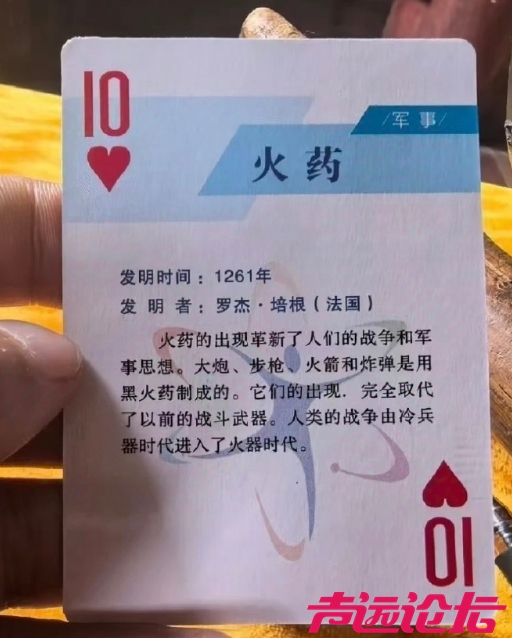 10
军事
火药
发明时间：1261年
发明者：罗杰·培根（法国）
火药的出现革新了人们的战争和军
事思想。大炮、步枪、火箭和炸弹是用
黑火药制成的。它们的出现．完全取代
了以前的战斗武器。人类的战争由冷兵
器时代进入了火器时代。
10
声远论坛